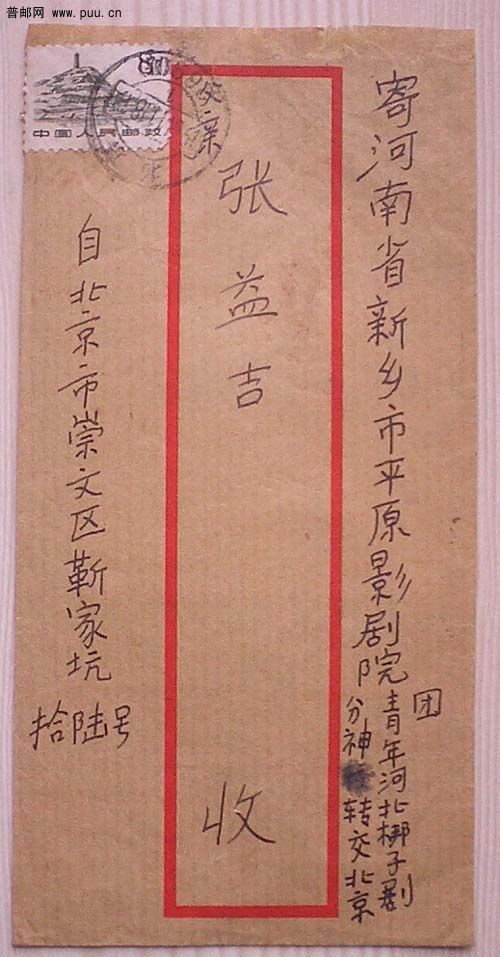 普邮网 www.puu.cn
寄河南省新乡市平原影剧院
分神转交北京
青年河北梆子剧
团
父亲
张益吉
收
自北京市崇文区靳家坑
拾陆号
中国人民邮政